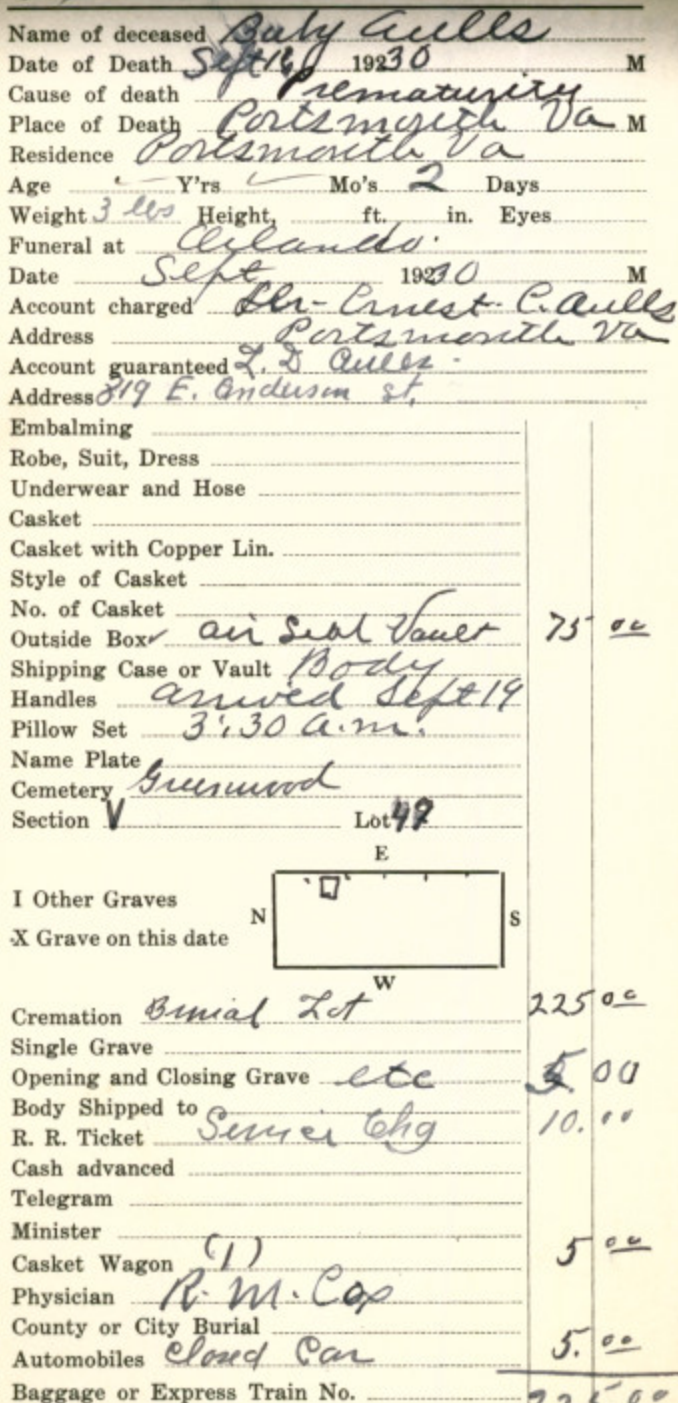 Name of deceased Baby Aulls
Date of Death Sept 1930 M
Cause of death Prematurity
Place of Death Portsmouth Va M
Residence Portsmouth Va
Age Y'rs Mo's 2 Days
Weight 3 lbs Height, ft. in. Eyes
Funeral at Orlando.
Date Sept 1930 M
Account charged Ernest C. Aulls
Address Portsmouth Va
Account guaranteed L. D Aulls
Address 819 E. Anderson st,
Embalming
Robe, Suit, Dress
Underwear and Hose
Casket
Casket with Copper Lin.
Style of Casket
No. of Casket
Outside Box air Seal Vault 75 00
Shipping Case or Vault Body
Handles arrived Sept 19
Pillow Set 3:30 a.m.
Name Plate
Cemetery Greenwood
Section V Lot
E
I Other Graves
N S
X Grave on this date
W
Cremation Burial Lot 225 00
Single Grave
Opening and Closing Grave etc 5 00
Body Shipped to
R. R. Ticket Service Chg 10.00
Cash advanced
Telegram
Minister
Casket Wagon (1) 5 00
Physician R. M. Cox
County or City Burial
Automobiles Closed Car 5.00
Baggage or Express Train No.